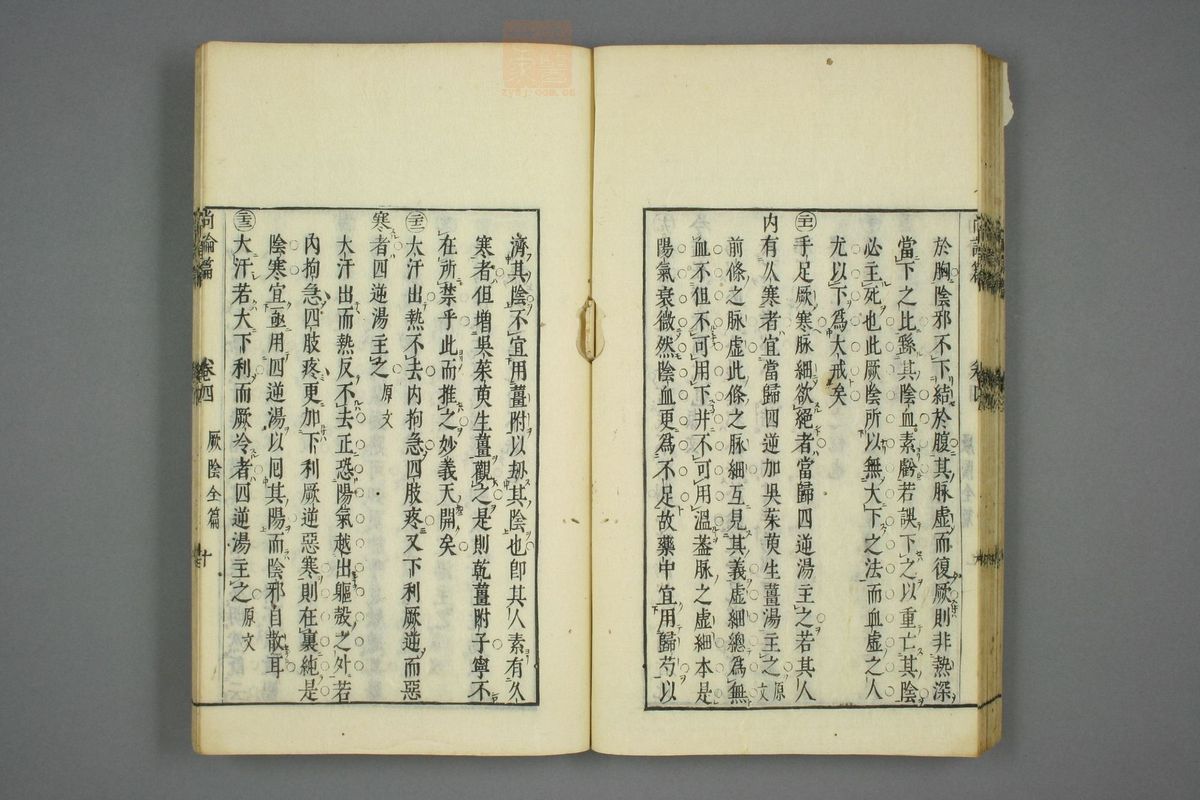 於胸陰邪不下結於腹其脉虛而復厥則非熱深
當下之比繇其陰血素虧若誤下之以重亡其陰
必主死也此厥陰所以無大下之法而血虛之人
尤以下爲大戒矣
手足厥寒脉細欲絕者當歸四逆湯主之若其人
內有久寒者宜當歸四逆加吳茱萸生薑湯主之原文
前條之脉虛此條之脉細互見其義虛細總爲無
血不但不可用下并不可用溫蓋脉之虛細本是
陽氣衰微然陰血更爲不足故藥中宜用歸芍以
濟其陰不宜用薑附以刼其陰也卽其人素有久
寒者但增吳茱萸生薑觀之是則乾薑附子寧不
在所禁乎此而推之妙義天開矣
大汗出熱不去內拘急四肢疼又下利厥逆而惡
寒者四逆湯主之 原文
大汗出而熱反不去正恐陽氣越出軀殼之外若
內拘急四肢疼更加下利厥逆惡寒則在裏純是
陰寒宜亟用四逆湯以囘其陽而陰邪自散耳
大汗若大下利而厥冷者四逆湯主之 原文
尚論篇 卷四 厥陰全篇 十
zysj.com.cn